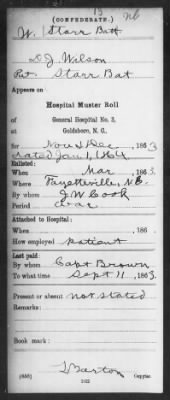 (CONFEDERATE.)
W. Starr Batt
D J Wilson
Pvt Starr Bat
Appears on
Hospital Muster Roll
of General Hospital No. 3,
at Goldsboro, N. C.,
for Nov & Dec, 1863
dated Jan 1, 1864
Enlisted:
When Mar, 1863
Where Fayetteville, N.C.
By whom J W Cook
Period war
Attached to Hospital:
When , 186 .
How employed patient
Last paid:
By whom Capt Brown
To what time Sept 11, 1863.
Present or absent not stated
Remarks:
Book mark:
Barton
(635) Copyist.